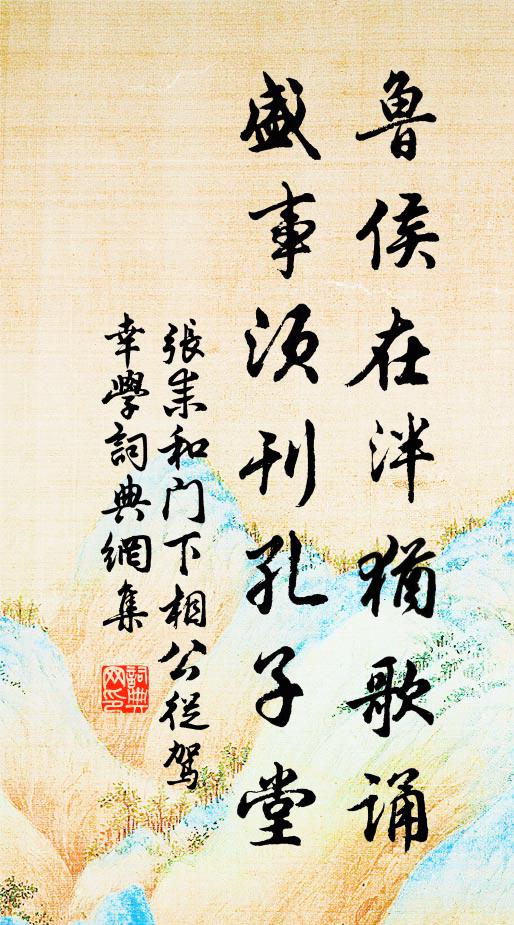 魯侯在泮猶歌誦
盛事須刊孔子堂
張耒和门下相公從駕
幸學詞典網集
詞典
网印